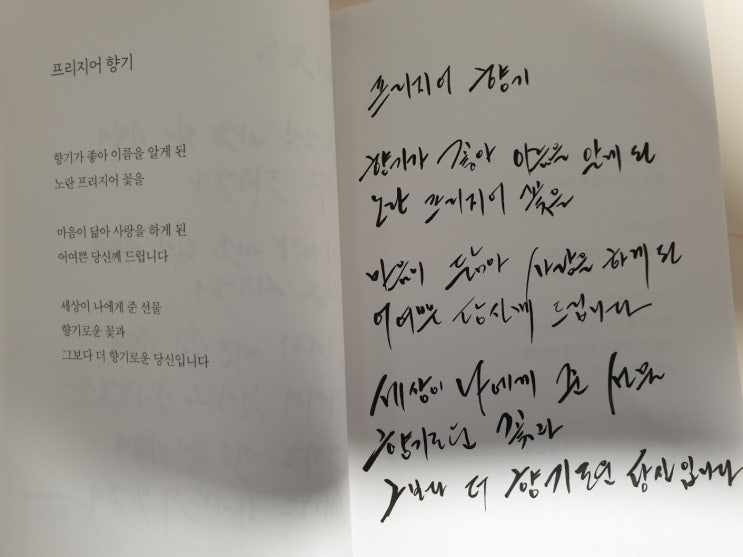 프리지어 향기
향기가 좋아 이름을 알게 된
노란 프리지어 꽃을
마음이 닮아 사랑을 하게 된
어여쁜 당신께 드립니다
세상이 나에게 준 선물
향기로운 꽃과
그보다 더 향기로운 당신입니다
프리지어 향기
향기가 좋아 이름을 알게 된
노란 프리지어 꽃을
마음이 닮아 사랑을 하게 된
어여쁜 당신께 드립니다
세상이 나에게 준 선물
향기로운 꽃과
그보다 더 향기로운 당신입니다